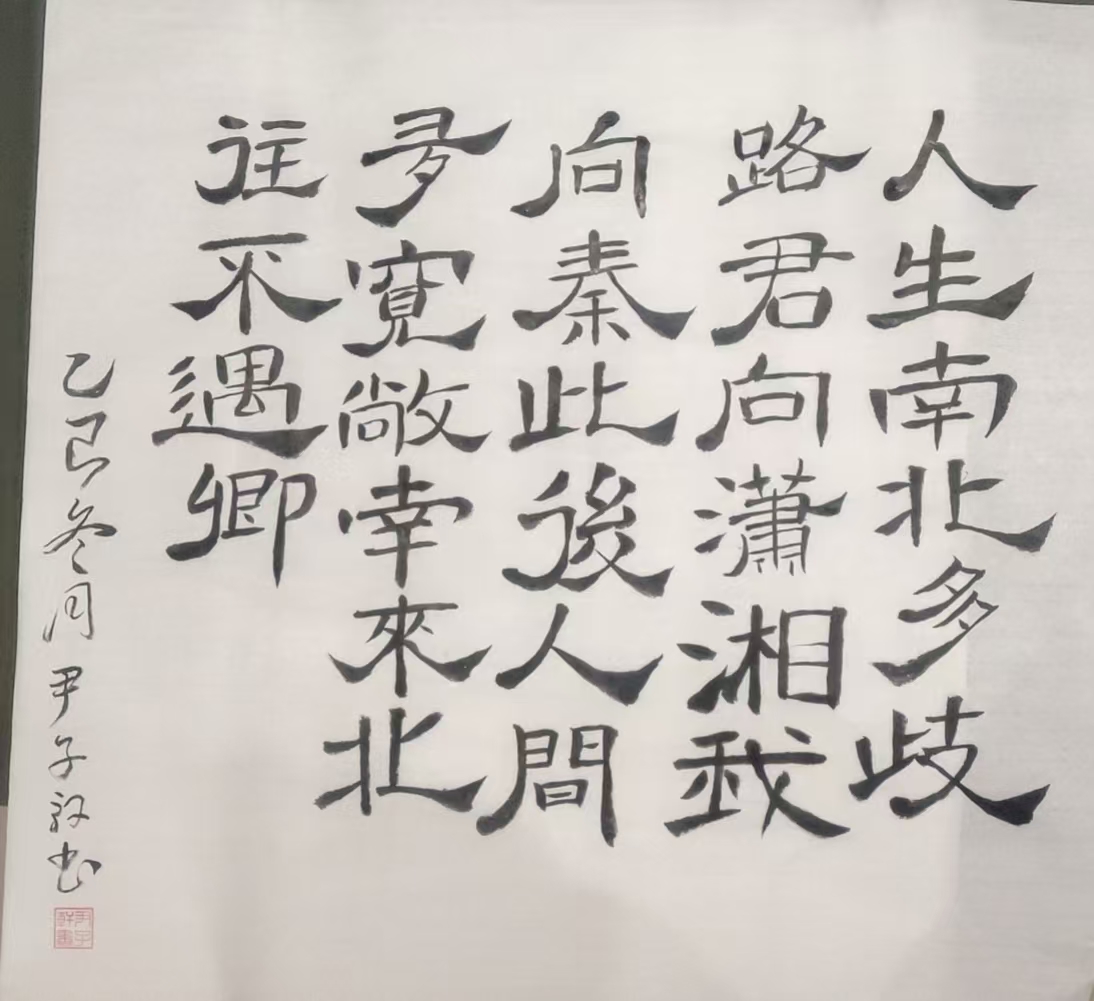 人生南北多歧
路君向瀟湘我
向秦此後人間
多寬敞南來北
往不遇卿
乙巳冬月尹子书